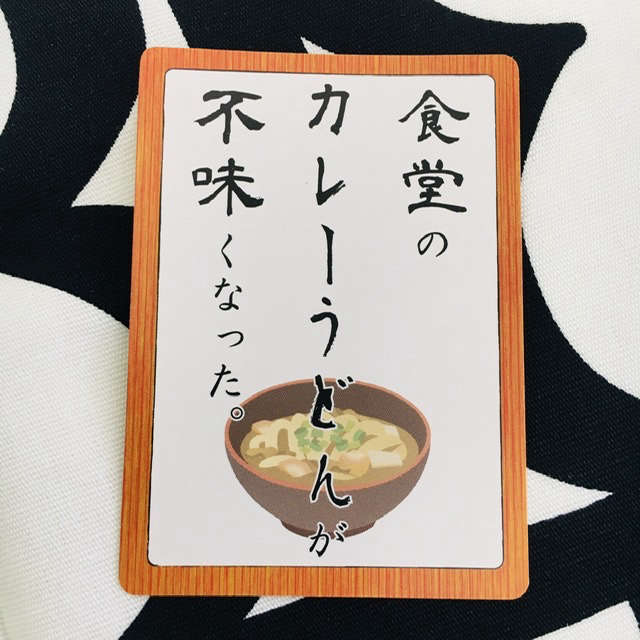 食堂の
カレーうどんが
不味くなった。